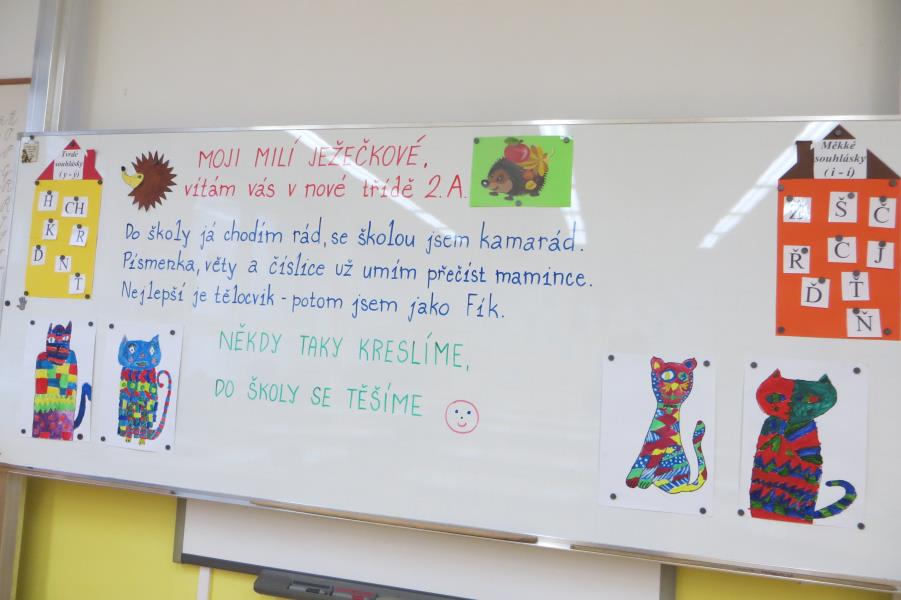 Tvrdé
souhlásky
(y - ý)
H CH
K R
D N
T
MOJI MILÍ JEŽEČKOVÉ,
vítám vás v nové třídě 2.A.
Do školy já chodím rád, se školou jsem kamarád.
Písmenka, věty a číslice už umím přečíst mamince.
Nejlepší je tělocvik - potom jsem jako Fík.
NĚKDY TAKY KRESLÍME,
DO ŠKOLY SE TĚŠÍME
Měkké
souhlásky
(i - í)
Ž Š Č
Ř C J
Ď Ť
Ň